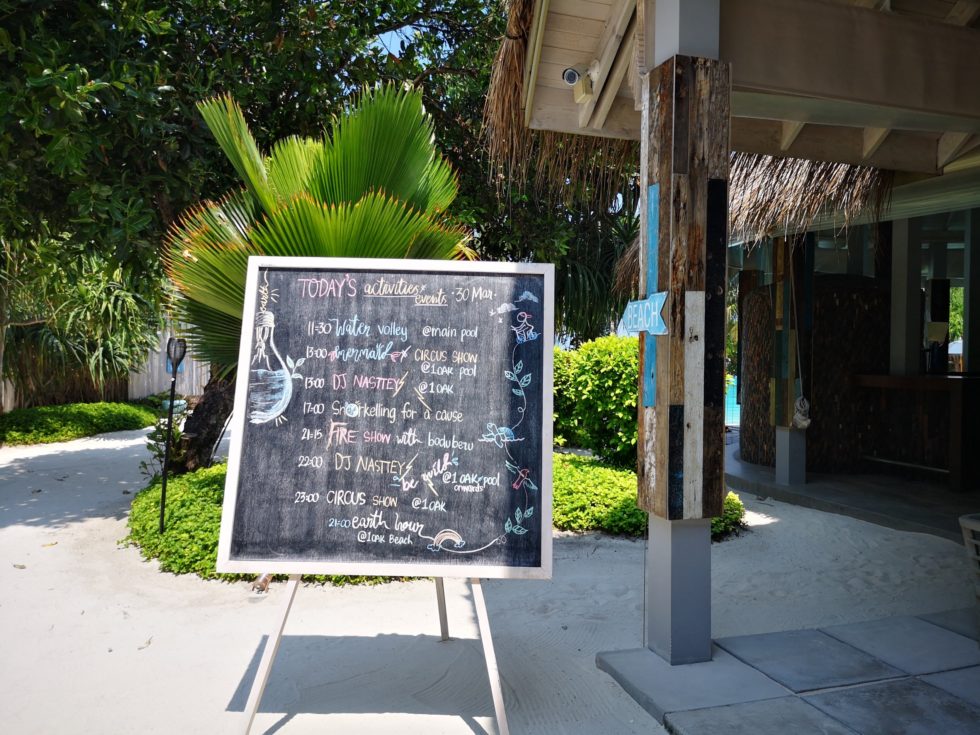 TODAY'S activities & events · 30 Mar ·
earth
11:30 Water volley @main pool
13:00 mermaid & CIRCUS SHOW @1OAK pool
13:00 DJ NASTTEY @1OAK
17:00 Snorkelling for a cause
21:15 FIRE SHOW with boduberu
22:00 DJ NASTTEY @1OAK pool onwards
be wild
23:00 CIRCUS SHOW @1OAK
21:00 earth hour
@1OAK Beach
BEACH